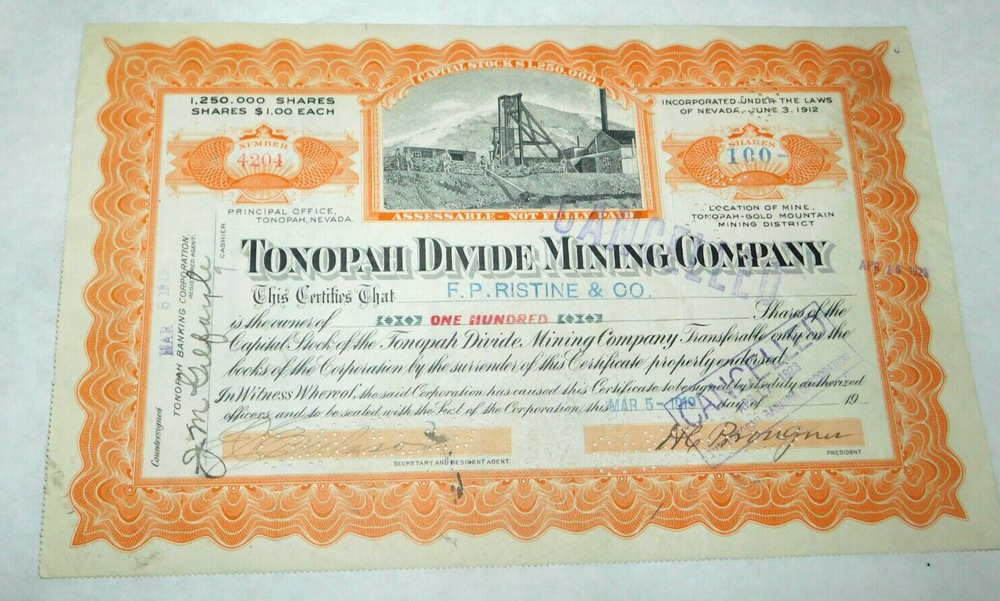 CAPITAL STOCK $1,250,000
1,250,000 SHARES
SHARES $1.00 EACH
INCORPORATED UNDER THE LAWS
OF NEVADA, JUNE 3, 1912
NUMBER
4204
SHARES
100-
PRINCIPAL OFFICE,
TONOPAH, NEVADA.
LOCATION OF MINE,
TONOPAH-GOLD MOUNTAIN
MINING DISTRICT
ASSESSABLE - NOT FULLY PAID
CANCELLED
TONOPAH DIVIDE MINING COMPANY
This Certifies That F.P. RISTINE & CO.
is the owner of ONE HUNDRED Shares of the
Capital Stock of the Tonopah Divide Mining Company Transferable only on the
books of the Corporation by the surrender of this Certificate properly endorsed.
In Witness Whereof, the said Corporation has caused this Certificate to be signed by its duly authorized
officers and to be sealed with the Seal of the Corporation this MAR 5-1919 day of 19
CANCELLED
SECRETARY AND RESIDENT AGENT.
PRESIDENT
Countersigned
TONOPAH BANKING CORPORATION
REGISTERED AGENT.
CASHIER